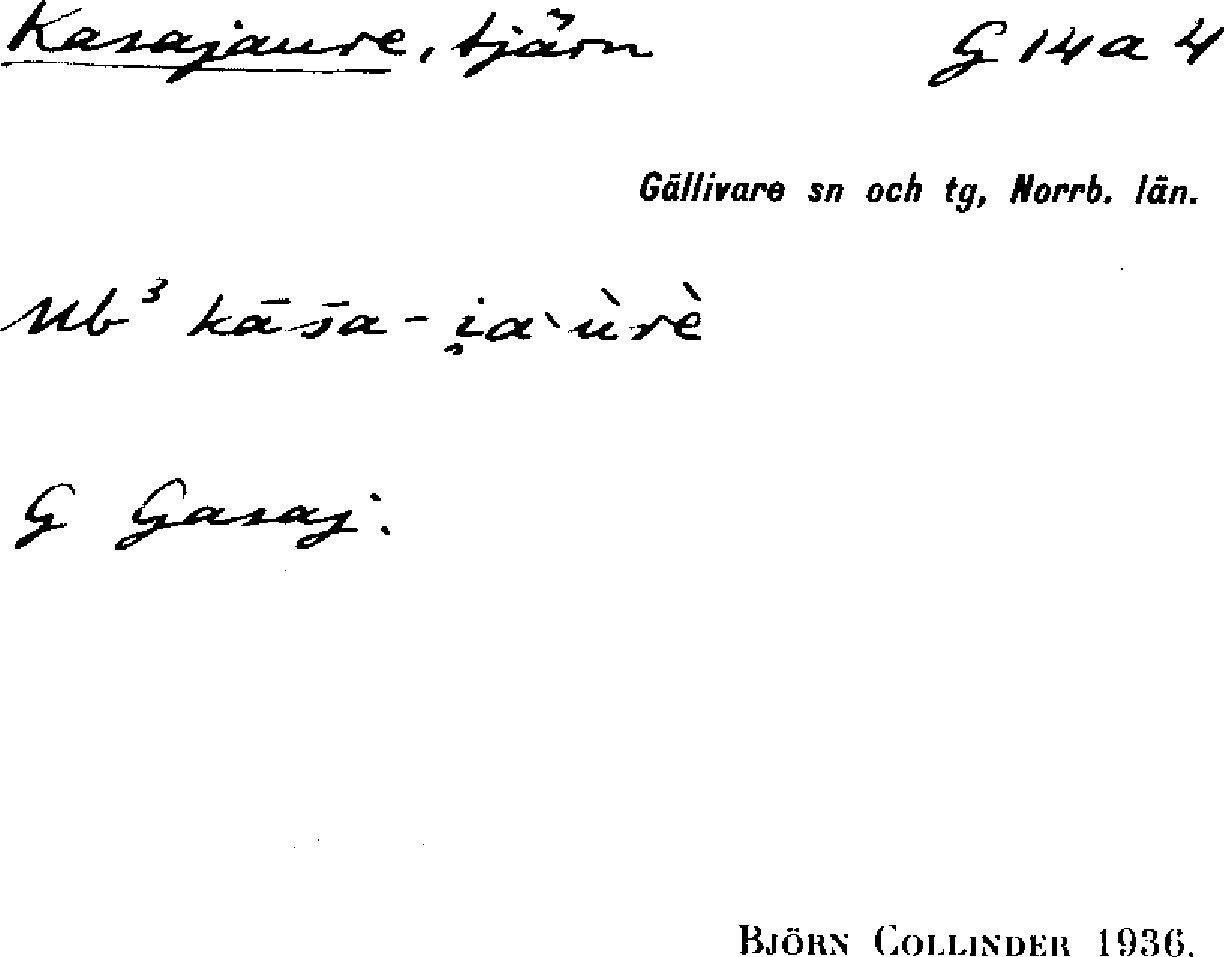 Kasajaure, tjärn G 14 a 4
Gällivare sn och tg, Norrb. län.
Nb³ kās̄a-i̯aˋùrè
G Gasaj:
BJÖRN COLLINDER 1936.